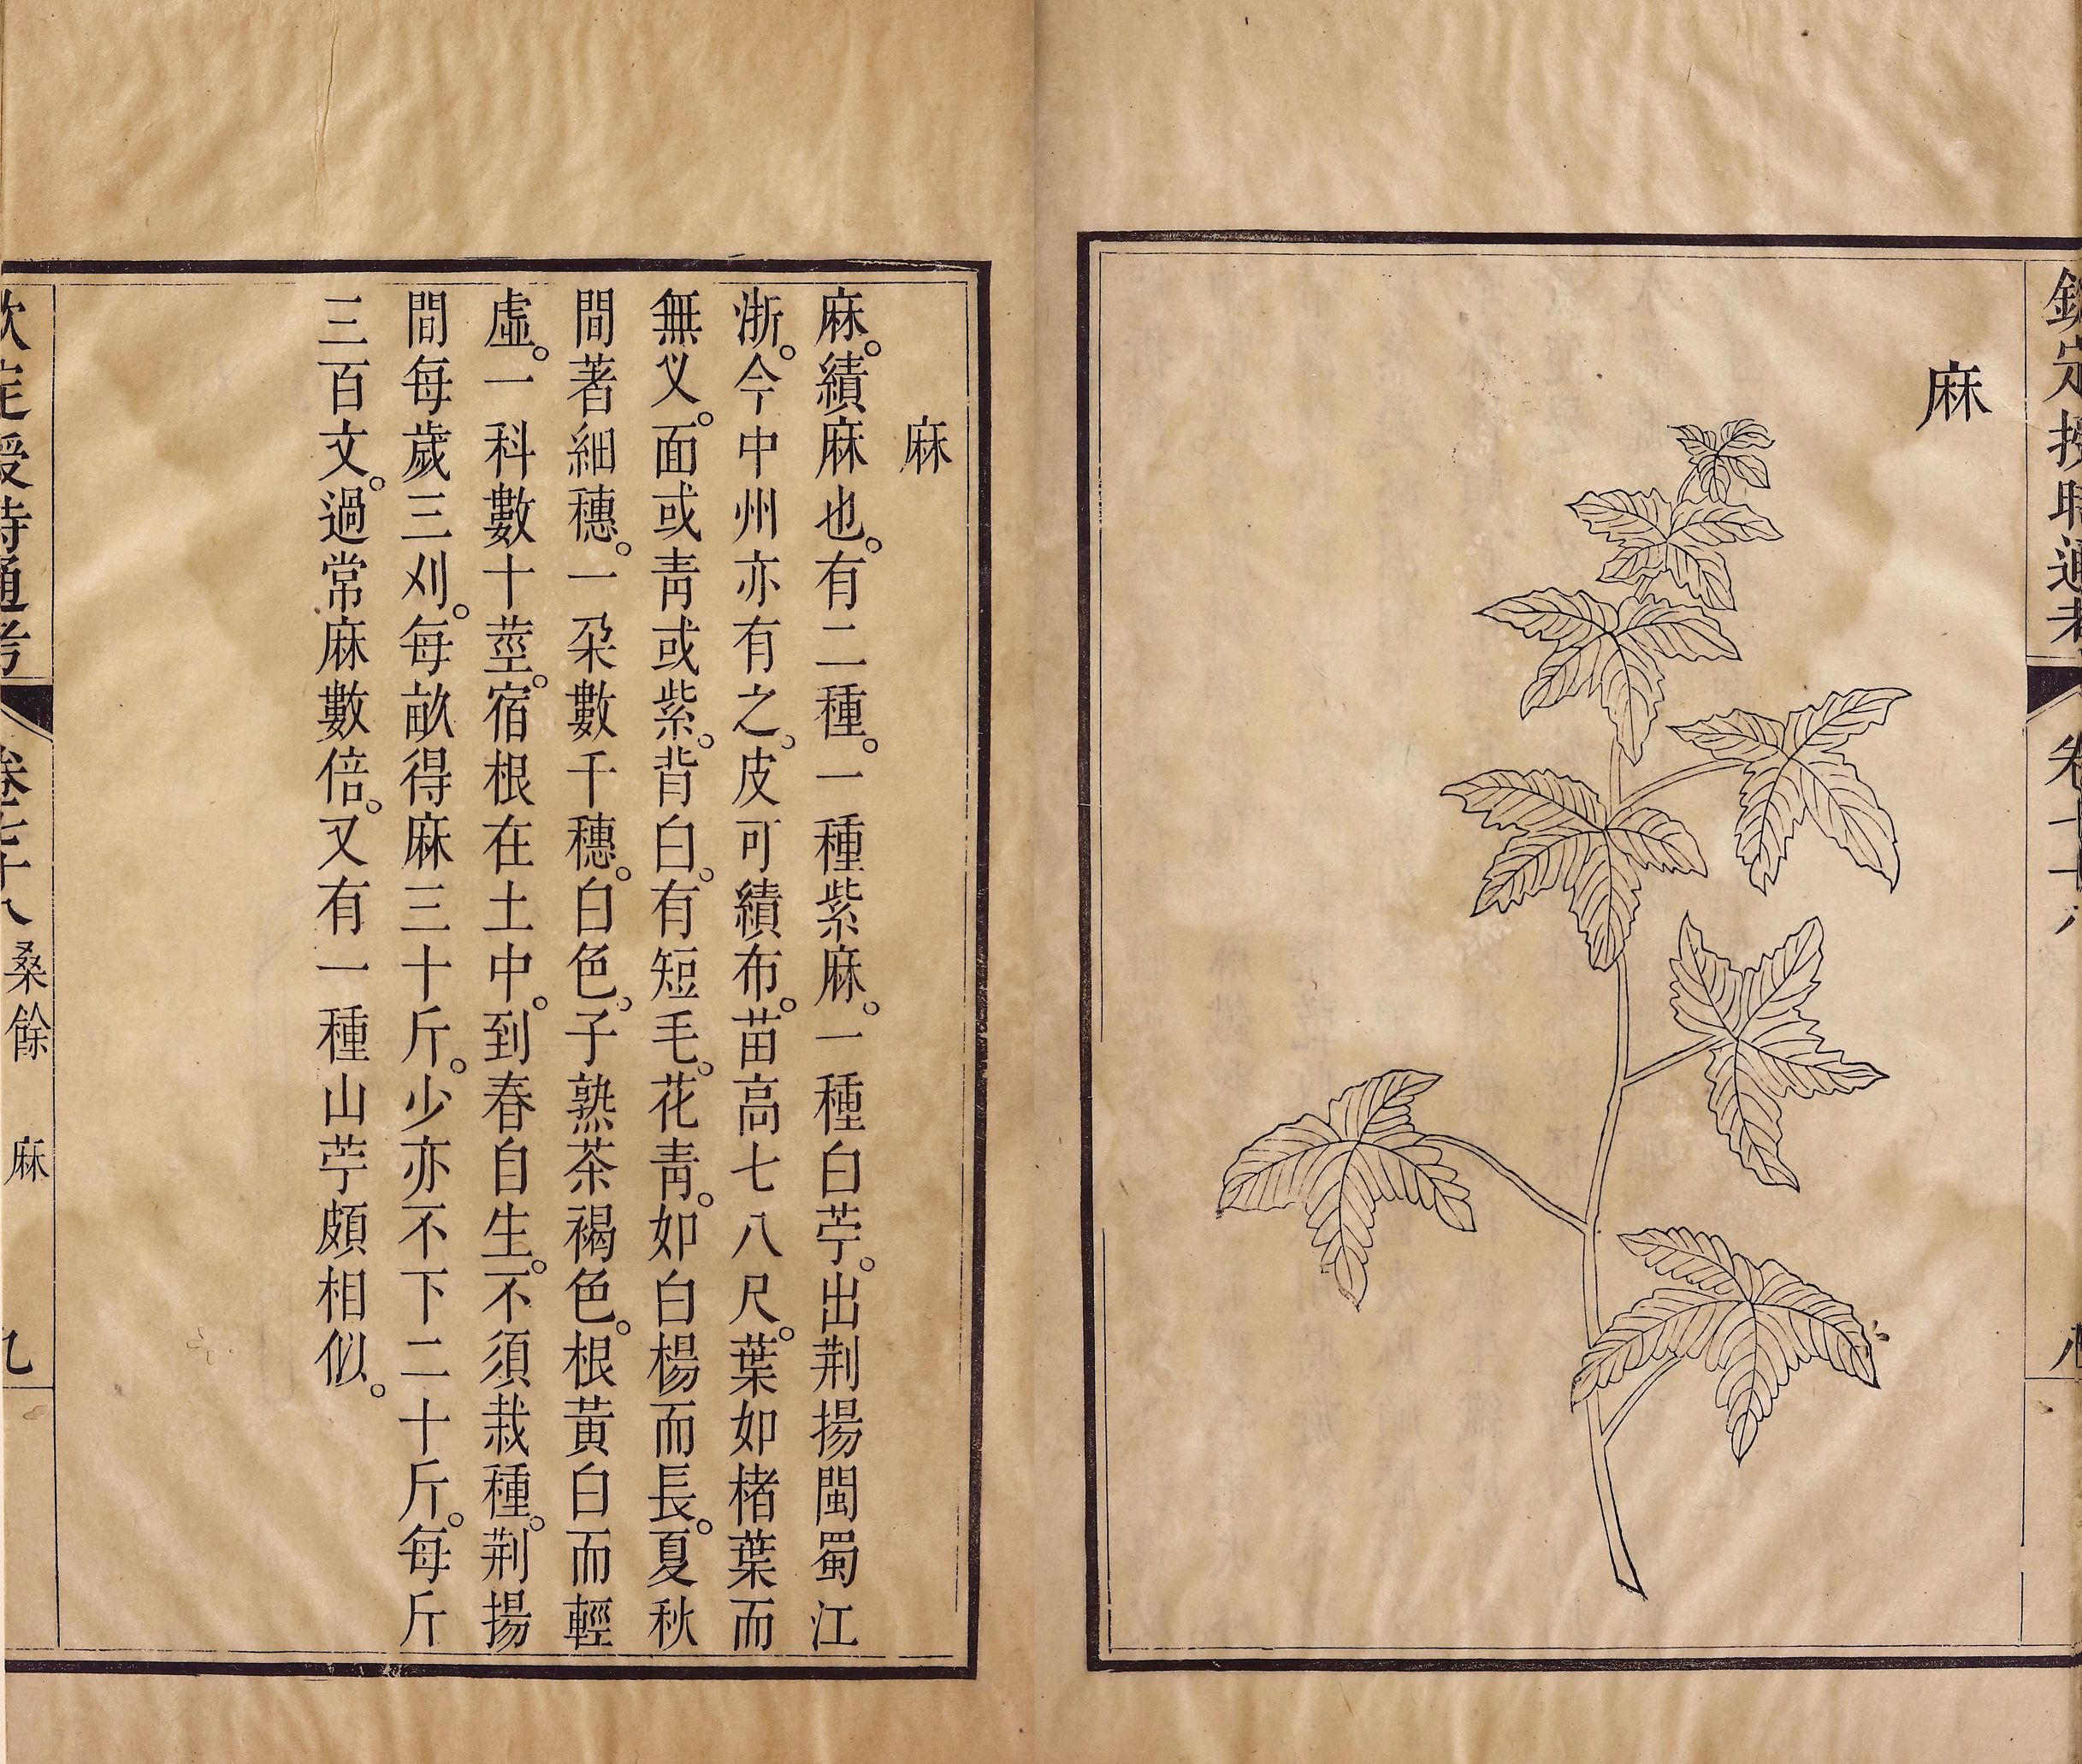 欽定授時通考
卷七十八
八
麻
麻
麻。績麻也。有二種。一種紫麻。一種白苧。出荆揚閩蜀江
浙。今中州亦有之。皮可績布。苗高七八尺。葉如楮葉而
無义。面或靑或紫。背白。有短毛。花靑。如白楊而長。夏秋
間著細穗。一朶數千穗。白色。子熟茶褐色。根黃白而輕
虛。一科數十莖。宿根在土中。到春自生。不須栽種。荆揚
間每歲三刈。每畝得麻三十斤。少亦不下二十斤。每斤
三百文。過常麻數倍。又有一種山苧頗相似。
欽定授時通考
卷七十八
桑餘 麻
九